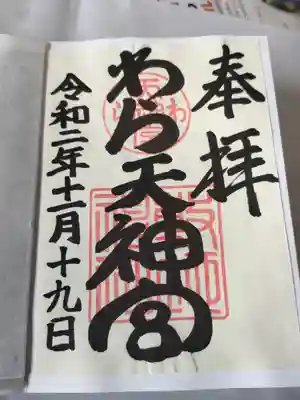 奉拝
わら天神宮
令和二年十一月十九日